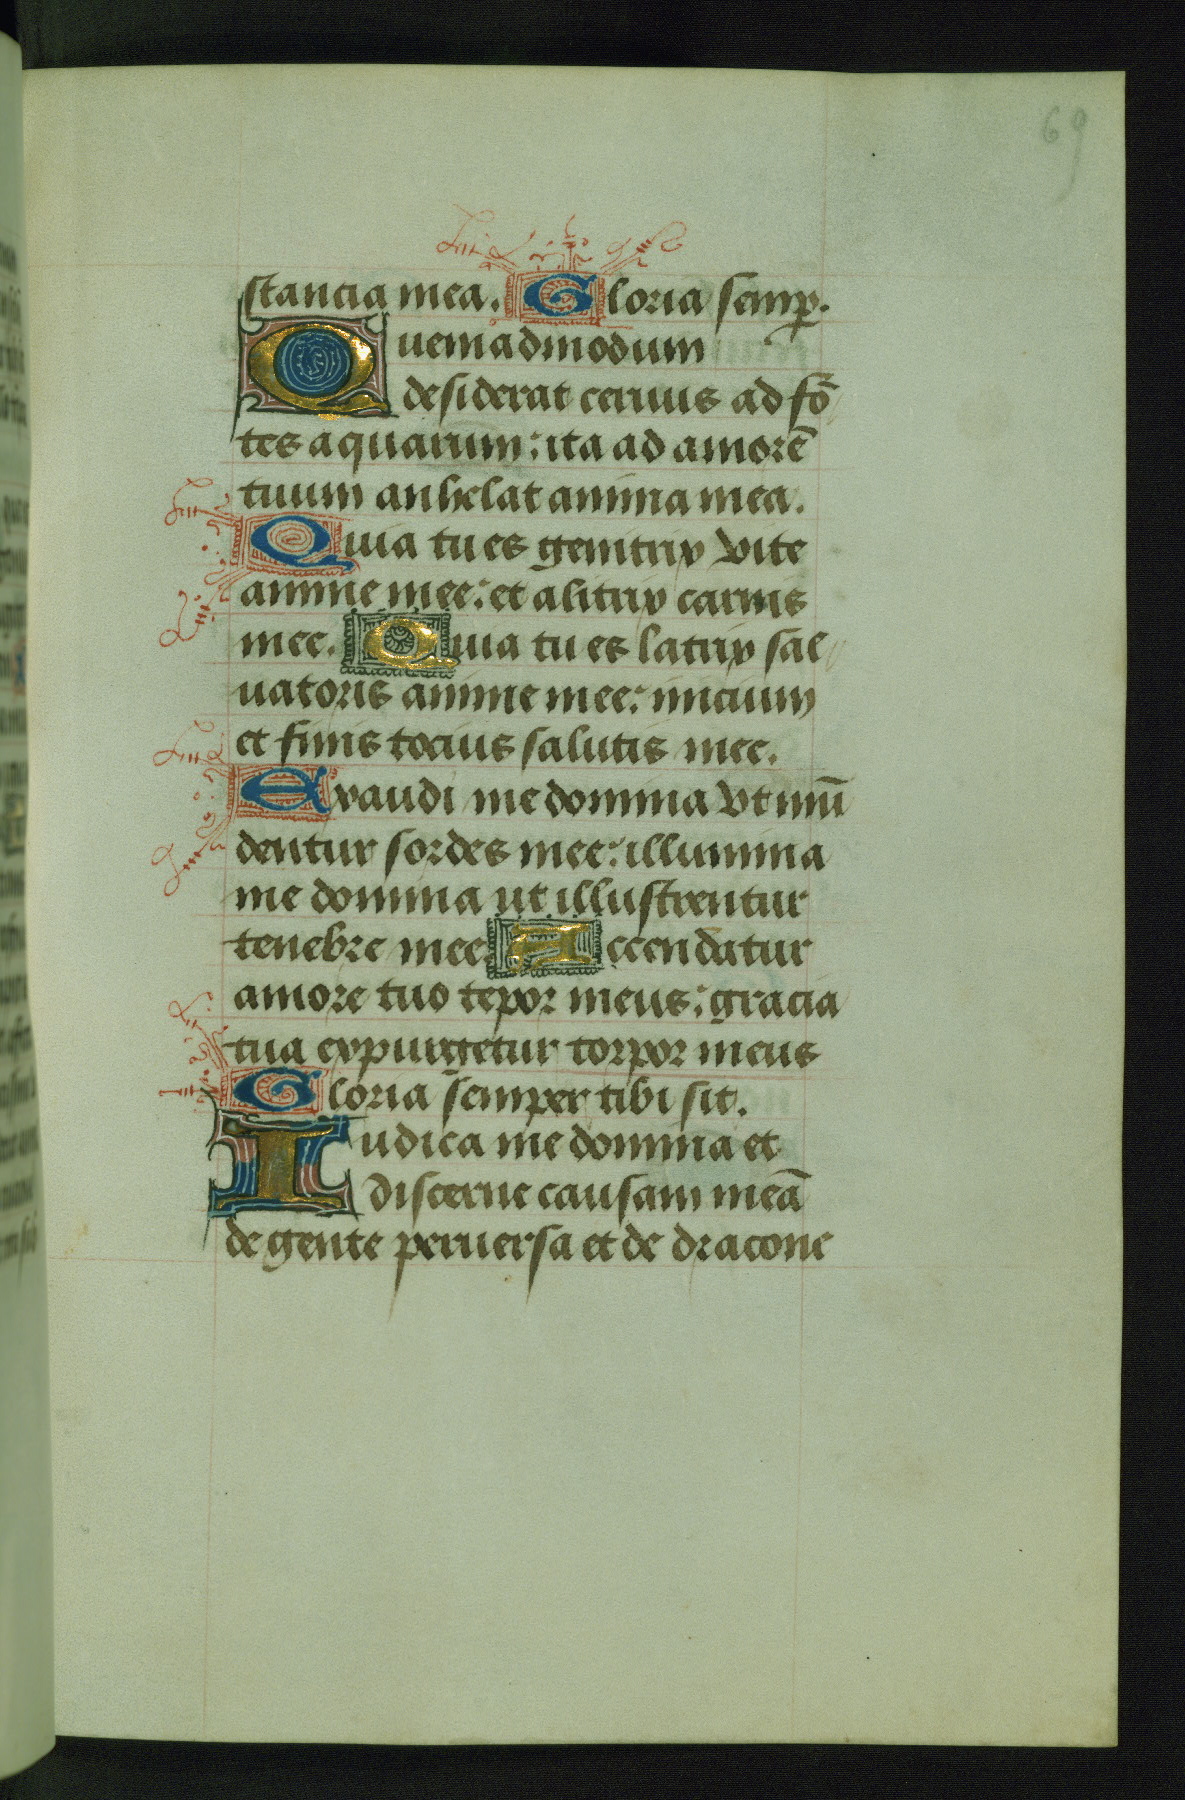 69
stancia mea. Gloria semp.
Quemadmodum
desiderat ceruus ad fō
tes aquarum: ita ad amorē
tuum anhelat anima mea.
Quia tu es genitrix vite
anime mee: et alitrix carnis
mee. Quia tu es latrix sal
uatoris anime mee: inicium
et finis tocius salutis mee.
Exaudi me domina vt mū
dentur sordes mee: illumina
me domina ut illustrentur
tenebre mee. Accendatur
amore tuo tepor meus: gracia
tua expurgetur torpor meus
Gloria semper tibi sit.
Iudica me domina et
discerne causam meā
de gente peruersa et de dracone